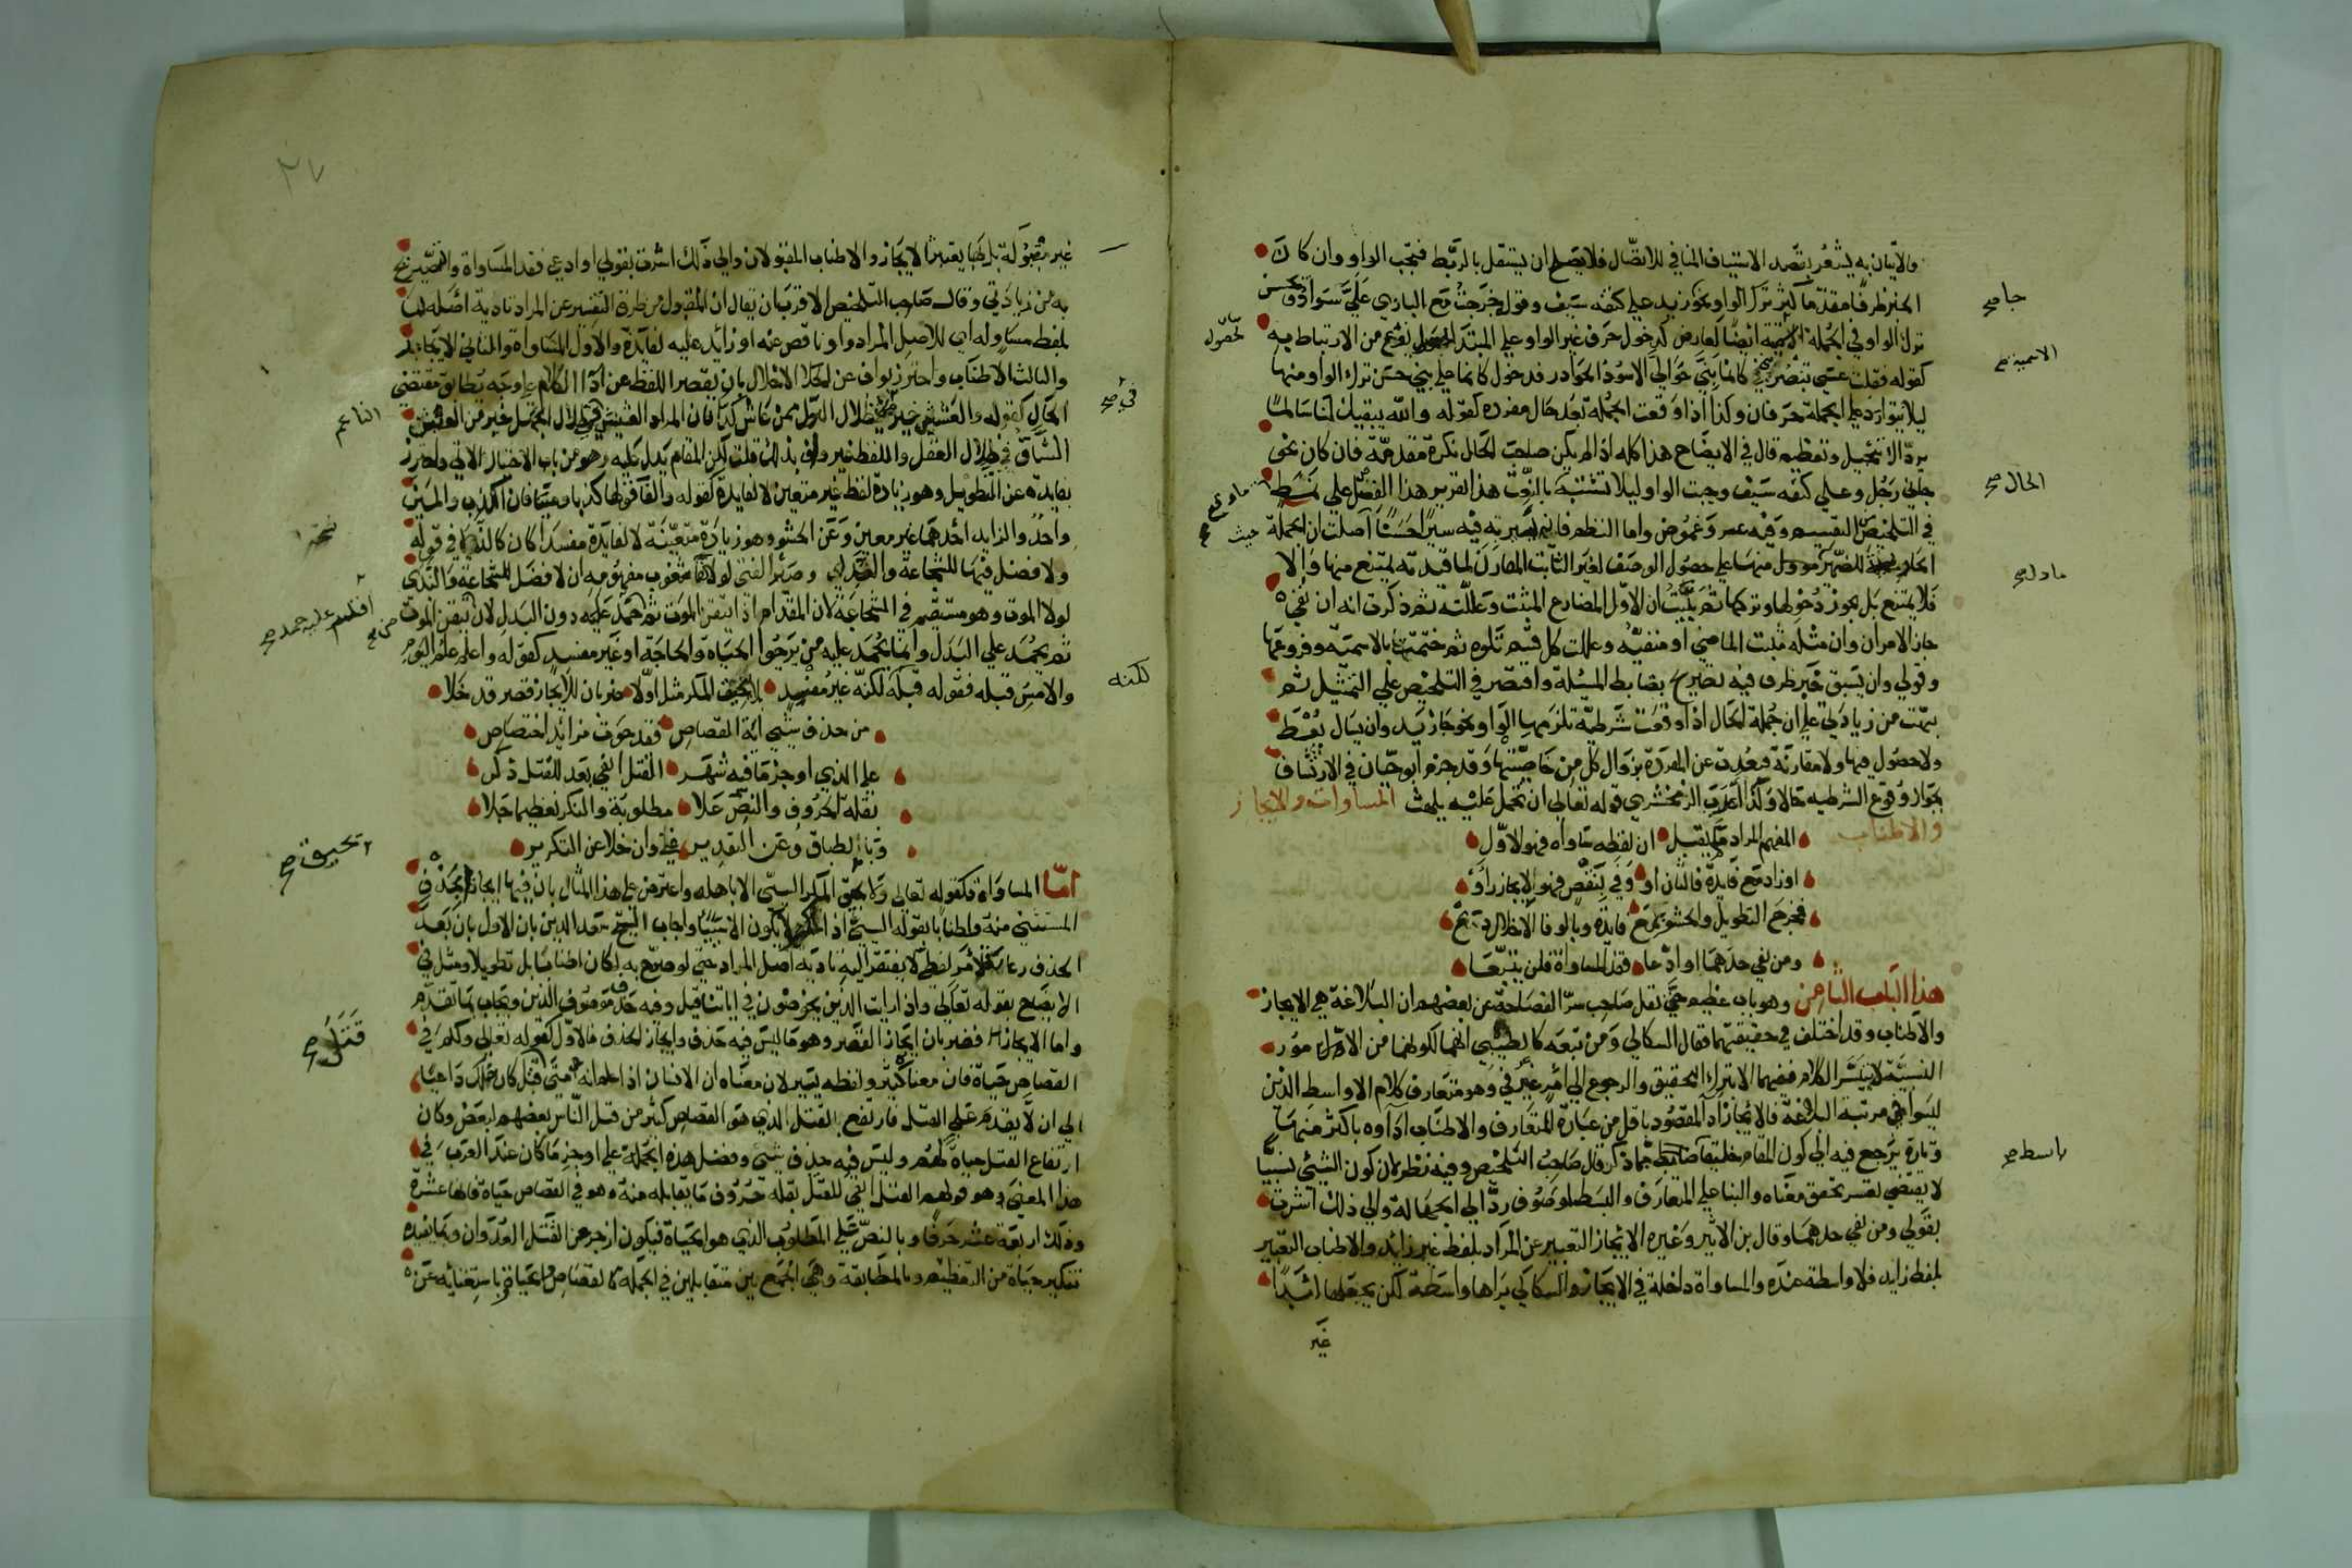 والاتيان به يشعر بقصد الاستيناف المنافي للاتصال فلا يصلح ان يستقل بالربط فتجب الواو وان كان
الخبر ظرفا مقدما كثر ترك الواو نحو زيد على كتفه سيف وقوله خرجت مع البازي علي سواد ويحسن
ترك الواو في الجملة الاسمية ايضا لعارض كدخول حرف غير الواو على المبتدا لحصول نوع من الارتباط به
كقوله فقلت عسى ان تبصريني كانما بني حوالي الاسود الحوادر فدخول كانما على بني حسن ترك الواو ومنها
ليلا يتوارد على الجملة حرفان وكذا اذا وقعت الجملة بعد حال مفردة كقوله والله يبقيك لنا سالما
برداك تبجيل وتعظيم قال في الايضاح هذا كله اذا لم يكن صاحب الحال نكرة مقدمة فان كان نحو
جاني رجل وعلى كتفه سيف وجبت الواو ليلا تشتبه بالنعت هذا تقرير هذا الفصل على
في التلخيص التقسيم وفيه عسر وغموض واما النظم فاني سيرته فيه سيرا حسنا اصلت ان الجملة
فلا يمتنع بل يجوز دخولها وتركها ثم بينت ان الاول المضارع المثبت وعللته ثم ذكرت انه ان نفي
جاز الامران وان مثله مثبت الماضي او منفيه وعللت كل قسم تلوه ثم ختمت بالاسمية وفروعها
وقولي وان يسبق خبر ظرف فيه تصريح بضابط المسئلة واقتصر في التلخيص على التمثيل ثم
نبهت من زيادتي على ان جملة الحال اذا وقعت شرطية تلزمها الواو نحو جاز يد وان يسال يعط
ولا حصول فيها ولا مقارنة فبعدت عن المفردة بزوال كل من خاصيتها وقد جزم ابو حيان في الارتشاف
بجواز وقوع الشرطيه حالا وكذا اعرب الزمخشري قوله تعالى ان تحمل عليه يلهث المساوات والايجاز
والاطناب
المفهم المراد مما يقبل ان لفظه ساواه فهو الاول
او زاد مع فايدة فالثان او وفي بنقص فهو الايجاز رأوا
فخرج التطويل والحشو بمع فايدة وبالوفا الاخلال دع
ومن نفي حدهما او ادعا فقد المساواة فلن يتبعا
هذا الباب الثامن وهو باب عظيم حتى نقل صاحب سر الفصاحة عن بعضهم ان البلاغة هي الايجاز
والاطناب وقد اختلف في حقيقتهما فقال السكاكي ومن تبعه كالطيبي انهما لكونهما من الامور
النسبية لا يتيسر الكلام فيهما الا بترك التحقيق والرجوع الى امر عرفي وهو متعارف كلام الاواسط الذين
ليسوا في مرتبة البلاغة فالايجاز اداء المقصود باقل من عبارة المتعارف والاطناب اداوه باكثر منها
وتارة يرجع فيه الى كون المقام خليقا بابسط مما ذكر قال صاحب التلخيص وفيه نظر لان كون الشيئ نسبيا
لا يقتضي تعسر تحقق معناه والبنا على المتعارف والبسط الموصوف رد الى الجهالة والى ذلك اشرت
بقولي ومن نفي حدهما وقال بن الاثير وغيره الايجاز التعبير عن المراد بلفظ غير زائد والاطناب التعبير
بلفظ زايد فلا واسطة عنده والمساواة داخلة في الايجاز والسكاكي يراها واسطة لكن يجعلها
غير
جا صح
الاسمية صح
الحال صح
ما دل صح
بابسط صح
لحصول
حيث
٢٧
غير مقبولة بل بها يعتبر الايجاز والاطناب المقبولان والى ذلك اشرت بقولي او ادعي فقد المساواة والتصريح
به من زيادتي وقال صاحب التلخيص الاقرب ان يقال ان المقبول من طرق التعبير عن المراد تادية اصله اما
بلفظ مساوله اي لاصل المراد او ناقص عنه او زائد عليه لفايدة والاول المساواة والثاني الايجاز
والثالث الاطناب واحترز بواف عن الاخلال بان يقصر اللفظ عن اداء الكلام على وجه تطابق مقتضى
الحال كقوله والعيش خير في ظلال النوك ممن عاش كدا فان المراد العيش في ظلال الجهل خير من العيش
الشاق في ظلال العقل واللفظ غير واف بذلك قلت لكن المقام يدل عليه وهو من باب الاختيار الاتي واحترز
بفايده عن التطويل وهو زيادة لفظ غير متعين لا لفايدة كقوله والفا قولها كذبا ومينا فان الكذب والمين
واحد والزايد احدهما غير معين وعن الحشو وهو زيادة متعينة لا لفايدة مفسدا كان كالندى في قوله
ولا فضل فيها للشجاعة والندى وصبر الفتى لولا لقا شعوب مفهومه ان لا فضل للشجاعة والندى
لولا الموت وهو مستقيم في الشجاعة لان المقدام اذا تيقن الموت ثم حمد عليه دون البذل لان تيقن الموت
ثم يحمد علي البذل وانما يحمد عليه من يرجوا الحياة والحاجة او غير مفسد كقوله واعلم علم اليوم
والامس قبله فقوله قبله لكنه غير مفسد لا يحيق المكر مثل اولا ضربان للايجاز قصر قد خلا
من حذف شيئ اية القصاص فقد حوت مزايد اختصاص
على الذي اوجز ما فيه شهر القتل انفي بعد للقتل ذكر
بقلة الحروف والنص علا مطلوبة والنكر تعظيما جلا
وبالطباق وعن التقدير وان خلا عن التكرير
امّا المساواة فكقوله تعالى ولا يحيق المكر السيئ الا باهله واعترض على هذا المثال بان فيها ايجازا بحذف
المستثنى منه واطنابا بقوله السيئ اذ المكر لا يكون الا سيئا واجاب الشيخ سعد الدين بان الاول بان بعد
الحذف رعاية لامر لفظي لا يفتقر اليه تادية اصل المراد حتى لو صرح به لكان اطنابا بل تطويلا ومثل في
الايضاح بقوله تعالى واذا رايت الذين يخوضون في اياتنا قيل وفيه حذف موصوف الذين ويجاب بما تقدم
واما الايجاز فضربان ايجاز القصر وهو ما ليس فيه حذف وايجاز الحذف فالاول كقوله تعالى ولكم في
القصاص حياة فان معناه كثير ولفظه يسير لان معناه ان الانسان اذا علم انه متى قتل كان ذلك داعيا
الى ان لا يقدم على القتل فارتفع بالقتل الذي هو القصاص كثير من قتل الناس بعضهم لبعض وكان
ارتفاع القتل حياة لهم وليس فيه حذف شيئ وفضل هذه الجملة على اوجز ما كان عند العرب في
هذا المعنى وهو قولهم القتل انفي للقتل بقلة حروف ما يقابله منه وهو في القصاص حياة فانها عشرة
وذلك اربعة عشر حرفا وبالنص على المطلوب الذي هو الحياة فيكون ازجر عن القتل العدوان وبما يفيده
تنكير حياة من التعظيم وبالمطابقة وهي الجمع بين متقابلين في الجملة كالقصاص والحياة وباستغنائه عن
في صح
لكنه
قتل صح